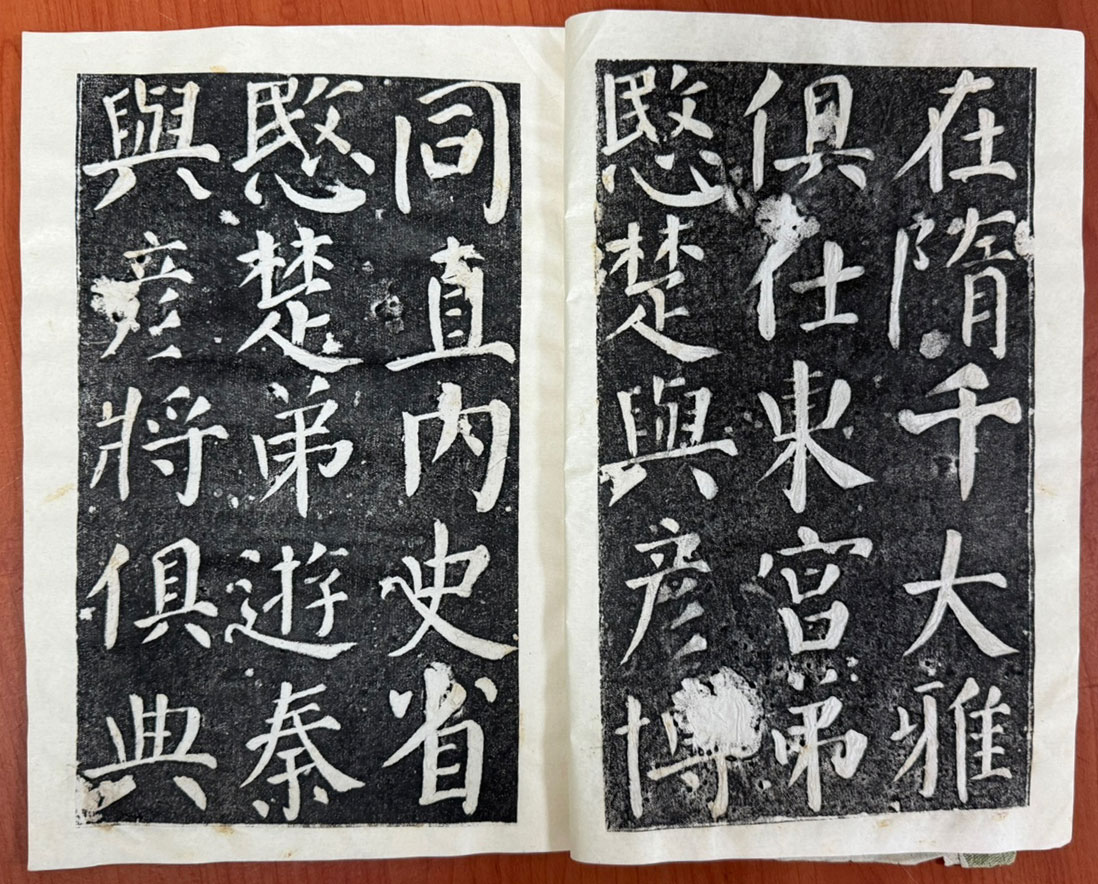 在隋千大雅
俱仕東宮弟
愍楚與彥博
同直內史省
愍楚弟遊秦
與彥將俱典